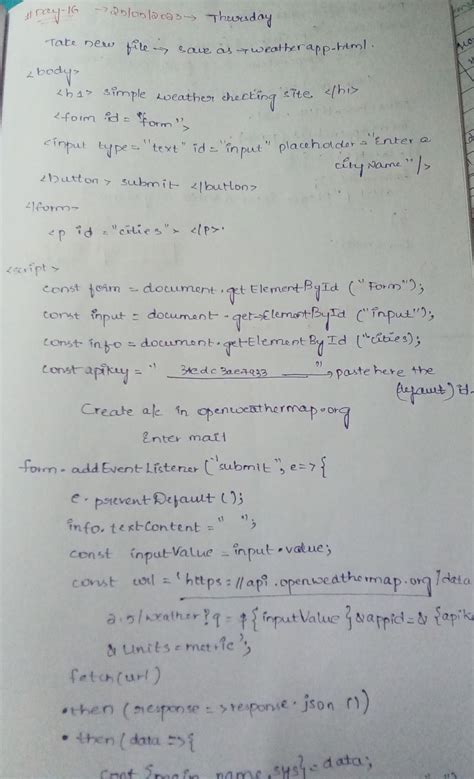 Day-16 → 25/05/2023 → Thursday
Take new file → save as → weatherapp.html.
<body>
<h1> simple weather checking site </h1>
<form id = "form">
<input type = "text" id = "input" placeholder = "Enter a
city Name"/>
<button> submit </button>
</form>
<p id = "cities"> </p>.
<script>
const form = document.getElementById ("Form");
const input = document.getElementById ("input");
const info = document.getElementById ("cities);
const apikey = " ", paste here the
(default) id.
Create a/c in openweathermap.org
Enter mail
form.addEventListener ("submit", e=>{
e.preventDefault ();
info.textContent = " ";
const inputValue = input.value;
const url = 'https://api.openweathermap.org/data
2.5/weather?q=${inputValue}&appid=&{apik
& units=metric';
fetch(url)
.then (response => response.json ())
.then (data =>{
const {main, name, sys} = data;